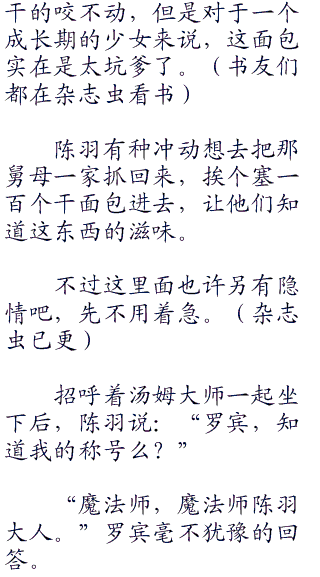 干的咬不动，但是对于一个
成长期的少女来说，这面包
实在是太坑爹了。（书友们
都在杂志虫看书）
陈羽有种冲动想去把那
舅母一家抓回来，挨个塞一
百个干面包进去，让他们知
道这东西的滋味。
不过这里面也许另有隐
情吧，先不用着急。（杂志
虫已更）
招呼着汤姆大师一起坐
下后，陈羽说：“罗宾，知
道我的称号么？”
“魔法师，魔法师陈羽
大人。”罗宾毫不犹豫的回
答。